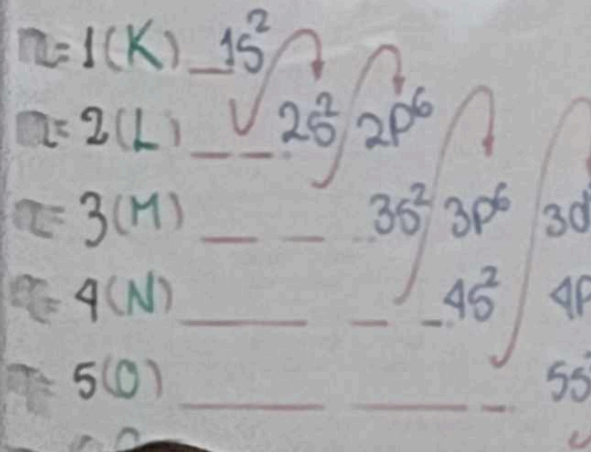 n=1(K) 1s²
n=2(L) 2s² 2p⁶
n=3(M) 3s² 3p⁶ 3d
n=4(N) 4s² 4p
n=5(O) 5s